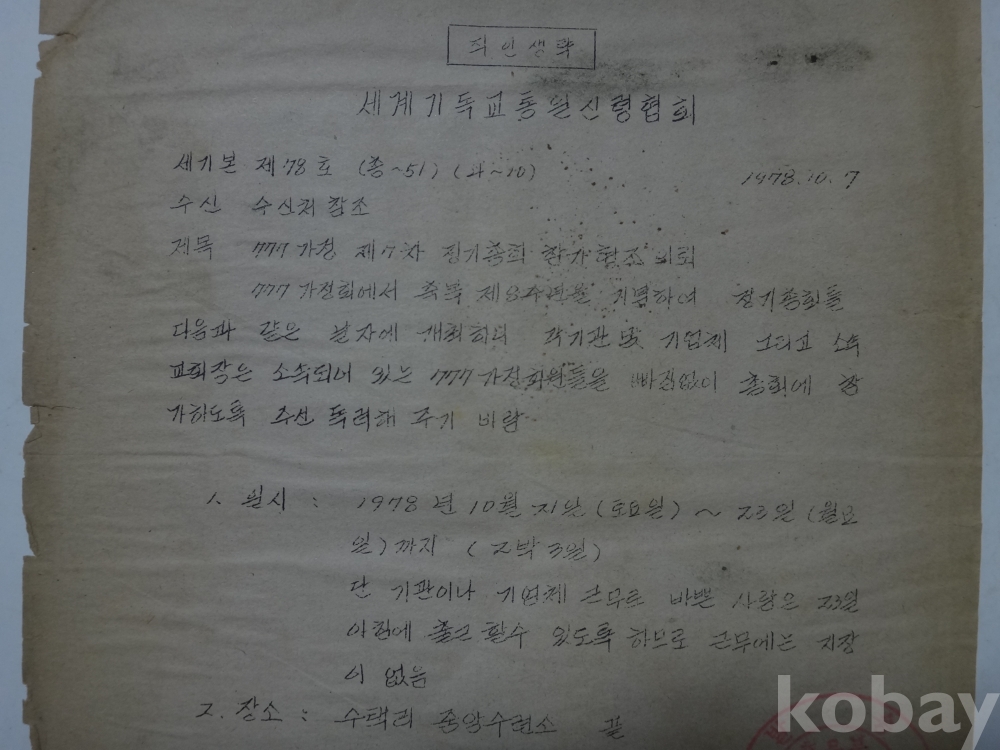 직인생략
세계기독교통일신령협회
세기본 제78호 (총~51) (과~10) 1978.10.7
수신 수신처참조
제목 777가정 제7차 정기총회 참가협조 의뢰
777가정회에서 축복 제8주년을 기념하여 정기총회를
다음과 같은 날자에 개최하니 각기관 및 기업체 그리고 소속
교회장은 소속되어 있는 777가정회원들을 빠짐없이 총회에 참
가하도록 주선 독려해 주기 바람
1. 일시 : 1978년 10월 21일 (토요일) ~ 23일 (월요
일) 까지 (2박 3일)
단 기관이나 기업체 근무로 바쁜 사람은 23일
아침에 출근 할수 있도록 하므로 근무에는 지장
이 없음
2. 장소 : 수택리 중앙수련소 끝
kobay